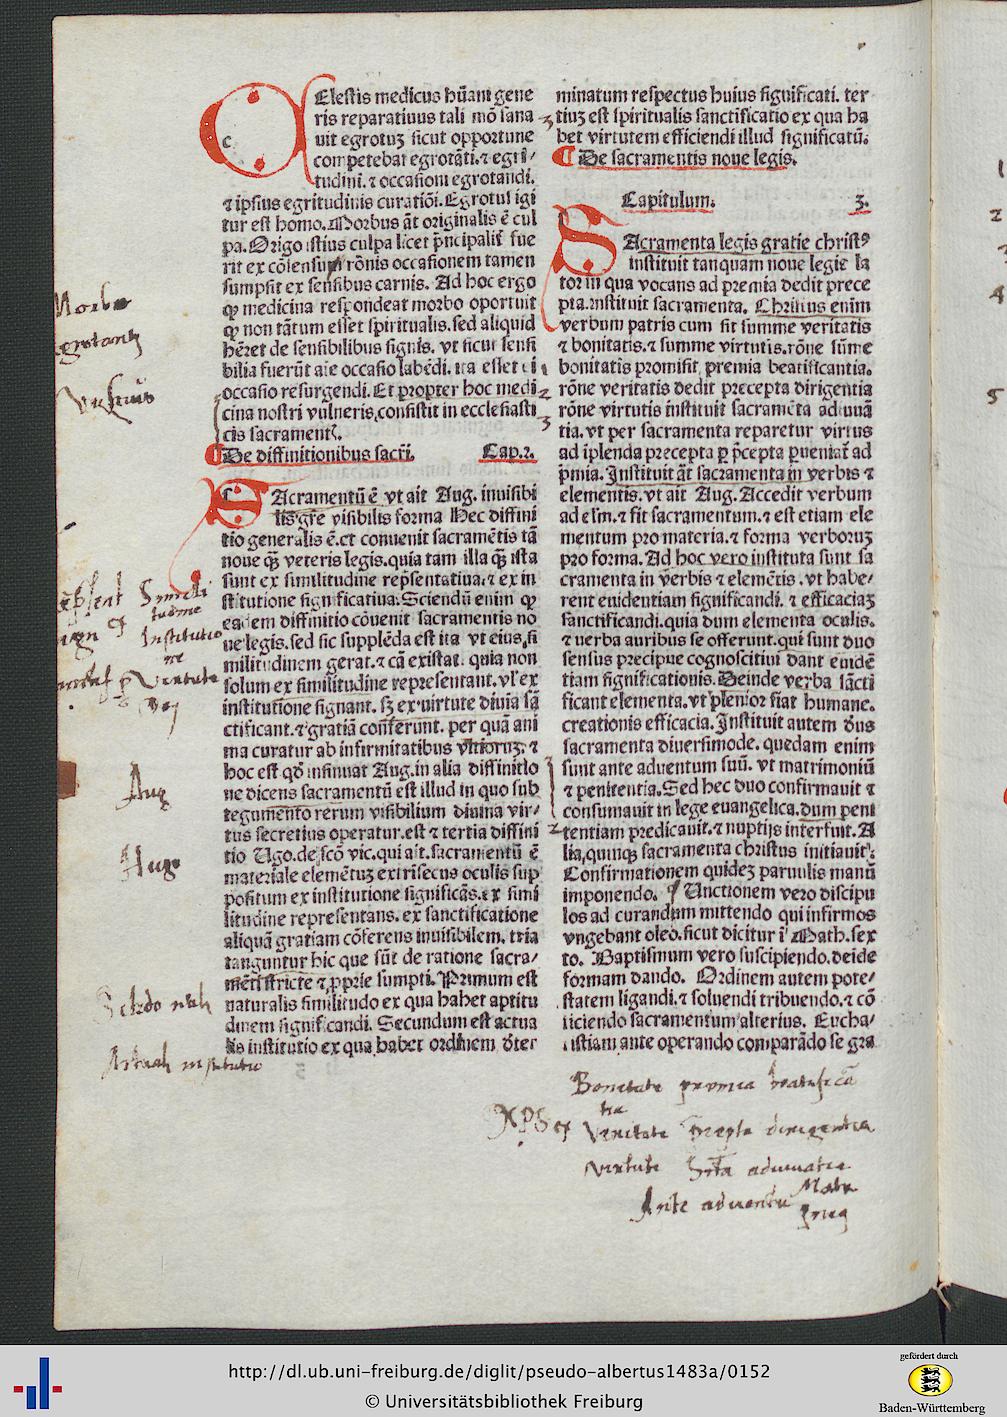 Elestis medicus hūani gene
ris reparatiuus tali mō sana
uit egrotuȝ sicut opportune
competebat egrotāti.⁊ egri⸗
tudini.⁊ occasioni egrotandi.
⁊ ipsius egritudinis curatiōi.Egrotus igi
tur est homo.Morbus āt originalis ē cul
pa.Origo istius culpa licet p̄ncipalis fue
rit ex cōsensu rōnis occasionem tamen
sumpsit ex sensibus carnis. Ad hoc ergo
ꝙ medicina respondeat morbo oportuit
ꝙ non tātum esset spiritualis.sed aliquid
hēret de sensibilibus signis. vt sicut sensi
bilia fuerūt aīe occasio labēdi. ita esset ei
occasio resurgendi.Et propter hoc medi
cina nostri vulneris,consistit in ecclesiasti
cis sacramentꝭ.
De diffinitionibus sacrī. Cap.2.
Acramentū ē vt ait Aug. inuisibi
lis gr̄e visibilis forma Hec diffini
tio generalis ē.et conuenit sacramētis tā
noue qȝ veteris legis.quia tam illa qȝ ista
sunt ex similitudine rep̄sentatiua.⁊ ex in
stitutione significatiua.Sciendū enim ꝙ
eadem diffinitio cōuenit sacramentis no
ue legis.sed sic supplēda est ita vt eius,si
militudinem gerat.⁊ cā existat. quia non
solum ex similitudine representant.vl' ex
institutione signant. sȝ ex virtute diuina sā
ctificant.⁊ gratiā conferunt. per quā ani
ma curatur ab infirmitatibus vitioruȝ. ⁊
hoc est qd̄ insinuat Aug.in alia diffinitio
ne dicens sacramentū est illud in quo sub
tegumento rerum visibilium diuina vir⸗
tus secretius operatur.est ⁊ tertia diffini
tio Ugo.de scō vic.qui ait.sacramentū ē
materiale elemētuȝ extrisecus oculis sup
positum ex institutione significās.ex simi
litudine representans. ex sanctificatione
aliquā gratiam cōferens inuisibilem. tria
tanguntur hic que sūt de ratione sacra⸗
mēti stricte ⁊ ꝓprie sumpti. Primum est
naturalis similitudo ex qua habet aptitu
dinem significandi. Secundum est actua
lis institutio ex qua habet ordinem d̄ter
minatum respectus huius significati. ter
tiuȝ est spiritualis sanctificatio ex qua ha
bet virtutem efficiendi illud significatū.
De sacramentis noue legis.
Capitulum. 3.
Acramenta legis gratie christꝰ
instituit tanquam noue legis la
tor in qua vocans ad premia dedit prece
pta.instituit sacramenta. Christus enim
verbum patris cum sit summe veritatis
⁊ bonitatis.⁊ summe virtutis.rōne sūme
bonitatis promisit premia beatificantia.
rōne veritatis dedit precepta dirigentia
rōne virtutis instituit sacramēta adiuuā
tia.vt per sacramenta reparetur virtus
ad iplenda precepta ꝑ p̄cepta ꝑueniat̄ ad
p̄mia. Instituit āt sacramenta in verbis ⁊
elementis.vt ait Aug. Accedit verbum
ad elm̄.⁊ fit sacramentum.⁊ est etiam ele
mentum pro materia.⁊ forma verboruȝ
pro forma.Ad hoc vero instituta sunt sa
cramenta in verbis ⁊ elemētis.vt habe⸗
rent euidentiam significandi. ⁊ efficaciaȝ
sanctificandi.quia dum elementa oculis.
⁊ verba auribus se offerunt.qui sunt duo
sensus precipue cognoscitiui dant euidē
tiam significationis.Deinde verba sācti
ficant elementa.vt plenior fiat humane.
creationis efficacia.Instituit autem dn̄s
sacramenta diuersimode. quedam enim
sunt ante aduentum suū. vt matrimoniū
⁊ penitentia.Sed hec duo confirmauit ⁊
consumauit in lege euangelica.dum peni
tentiam predicauit.⁊ nuptijs interfuit. A
lia,quinqȝ sacramenta christus initiauit.
Confirmationem quideȝ paruulis manū
imponendo. Unctionem vero discipu
los ad curandum mittendo qui infirmos
vngebant oleo.sicut dicitur ī Math.sex
to. Baptismum vero suscipiendo.deide
formam dando. Ordinem autem pote⸗
statem ligandi.⁊ soluendi tribuendo.⁊ cō
iiciendo sacramentum alterius. Eucha⸗
ristiam ante operando comparādo se gra
Aug
Hug
Actualis institutio
Bonitate premia beatificā
tia
Veritate precepta dirigentia
virtute Sacrā adiuuātia
Ante aduentū Matr
http://dl.ub.uni-freiburg.de/diglit/pseudo-albertus1483a/0152
© Universitätsbibliothek Freiburg
gefördert durch
Baden-Württemberg